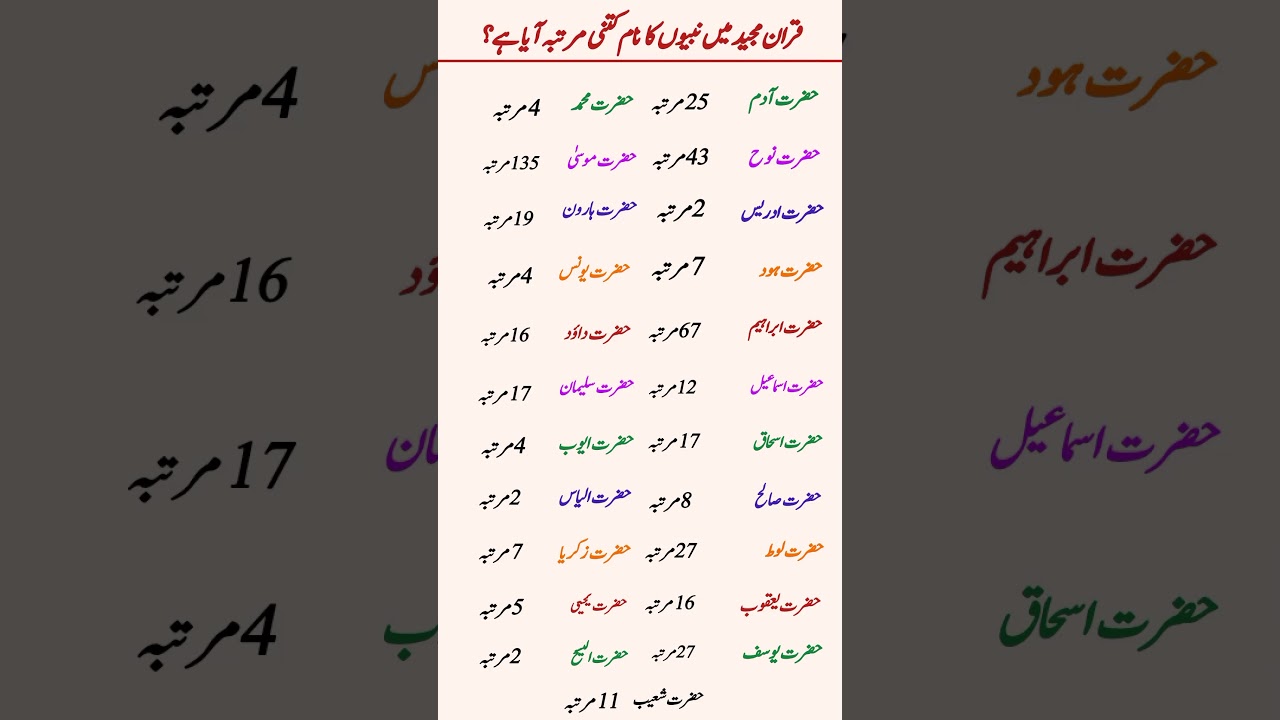 قران مجید میں نبیوں کا نام کتنی مرتبہ آیا ہے؟
حضرت آدم 25 مرتبہ حضرت محمد 4 مرتبہ
حضرت نوح 43 مرتبہ حضرت موسیٰ 135 مرتبہ
حضرت ادریس 2 مرتبہ حضرت ہارون 19 مرتبہ
حضرت ہود 7 مرتبہ حضرت یونس 4 مرتبہ
حضرت ابراہیم 67 مرتبہ حضرت داؤد 16 مرتبہ
حضرت اسماعیل 12 مرتبہ حضرت سلیمان 17 مرتبہ
حضرت اسحاق 17 مرتبہ حضرت ایوب 4 مرتبہ
حضرت صالح 8 مرتبہ حضرت الیاس 2 مرتبہ
حضرت لوط 27 مرتبہ حضرت زکریا 7 مرتبہ
حضرت یعقوب 16 مرتبہ حضرت یحیی 5 مرتبہ
حضرت یوسف 27 مرتبہ حضرت 2 مرتبہ
حضرت شعیب 11 مرتبہ
حضرت ہود
4 مرتبہ
حضرت ابراہیم
16 مرتبہ
حضرت اسماعیل
17 مرتبہ
حضرت اسحاق
4 مرتبہ